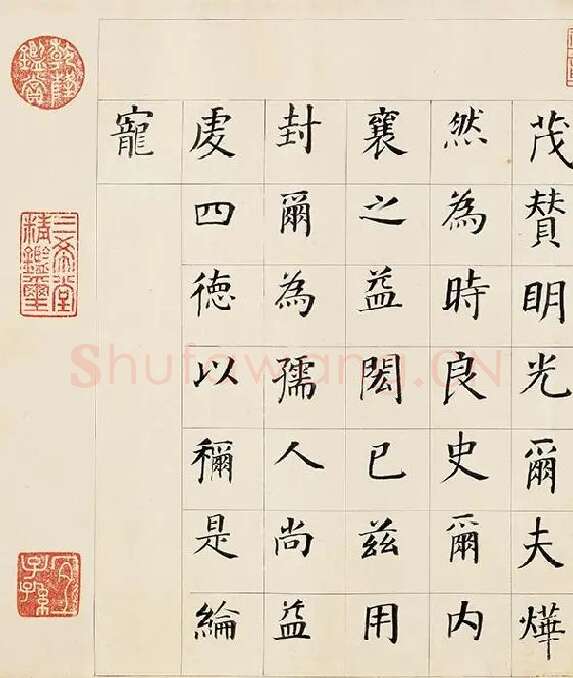 茂賛明光爾夫燁
然為時良史爾内
襄之益閎已茲用
封爾為孺人尚益
虔四徳以穪是綸
寵
乾隆鑑賞
三希堂精鑑璽
宜子孫
Shufawang.CN